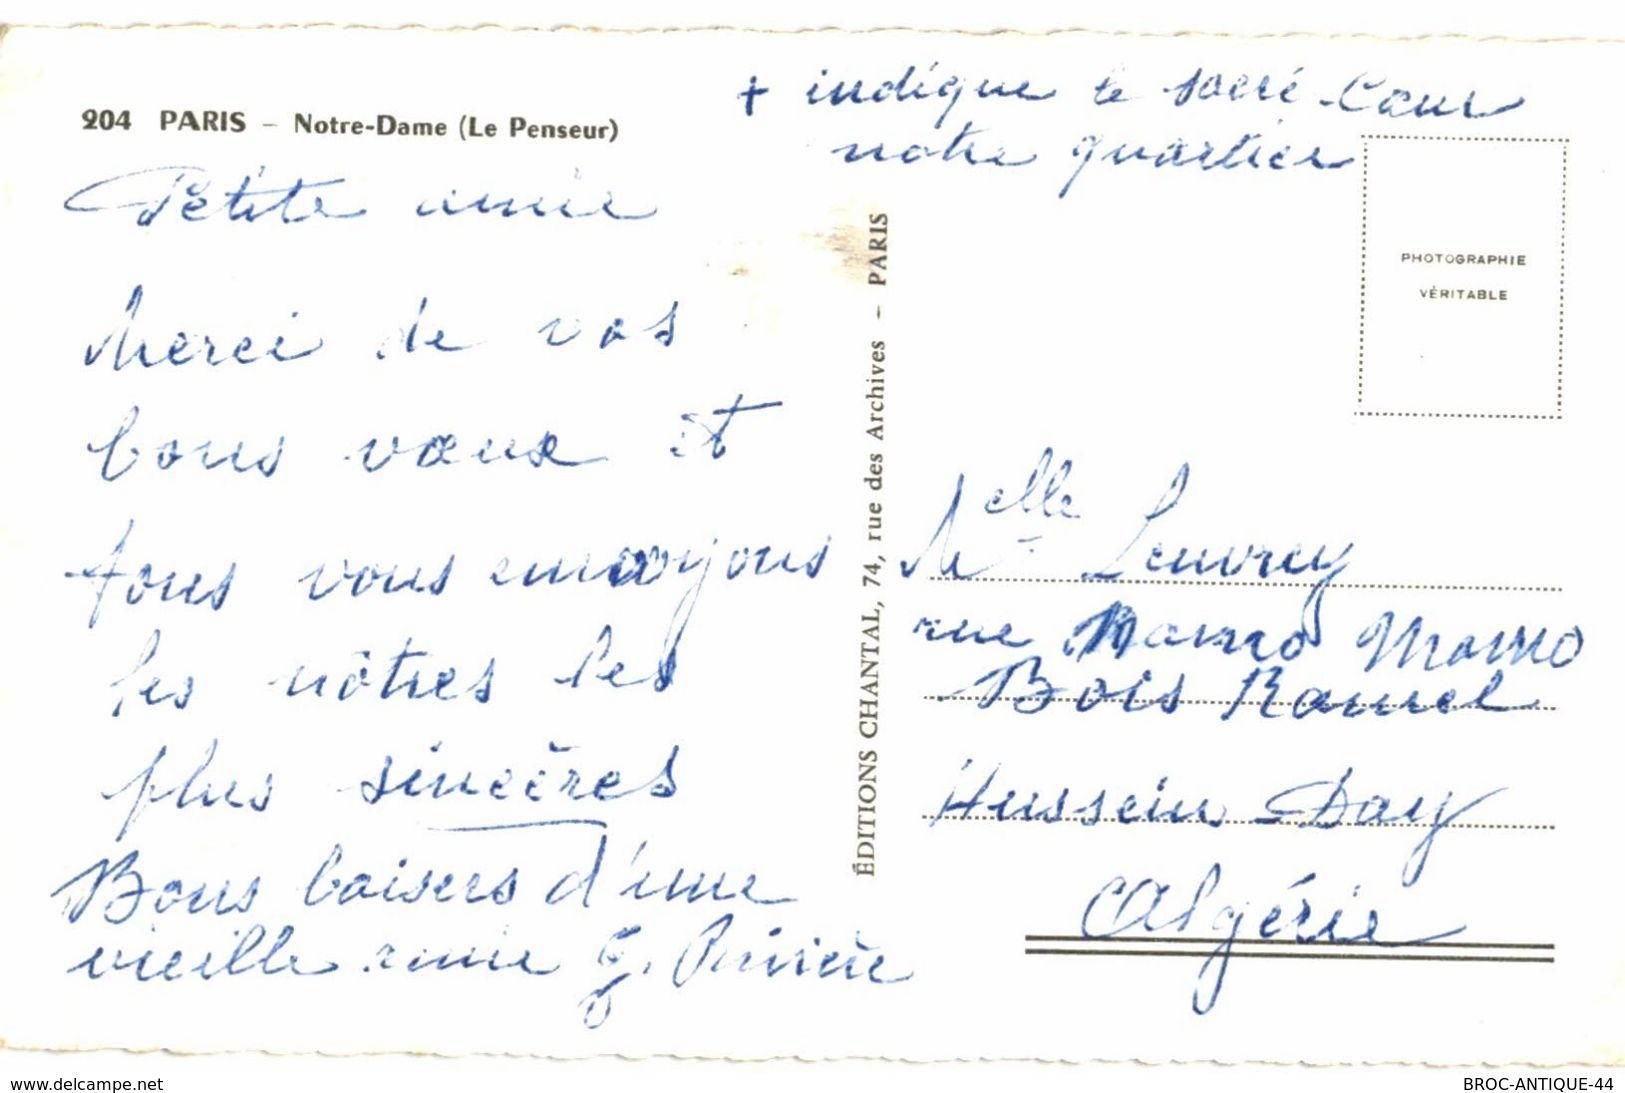 204 PARIS – Notre-Dame (Le Penseur)
+ indique le sacré-Cœur
notre quartier
Petite amie
Merci de vos
bons vœux et
tous vous envoyons
les nôtres les
plus sincères
Bons baisers d'une
vieille amie G. Rivière
ÉDITIONS CHANTAL, 74, rue des Archives – PARIS
PHOTOGRAPHIE
VÉRITABLE
Melle Leuvrey
rue Momo
Bois Ramel
Hussein Day
Algérie
www.delcampe.net
BROC-ANTIQUE-44